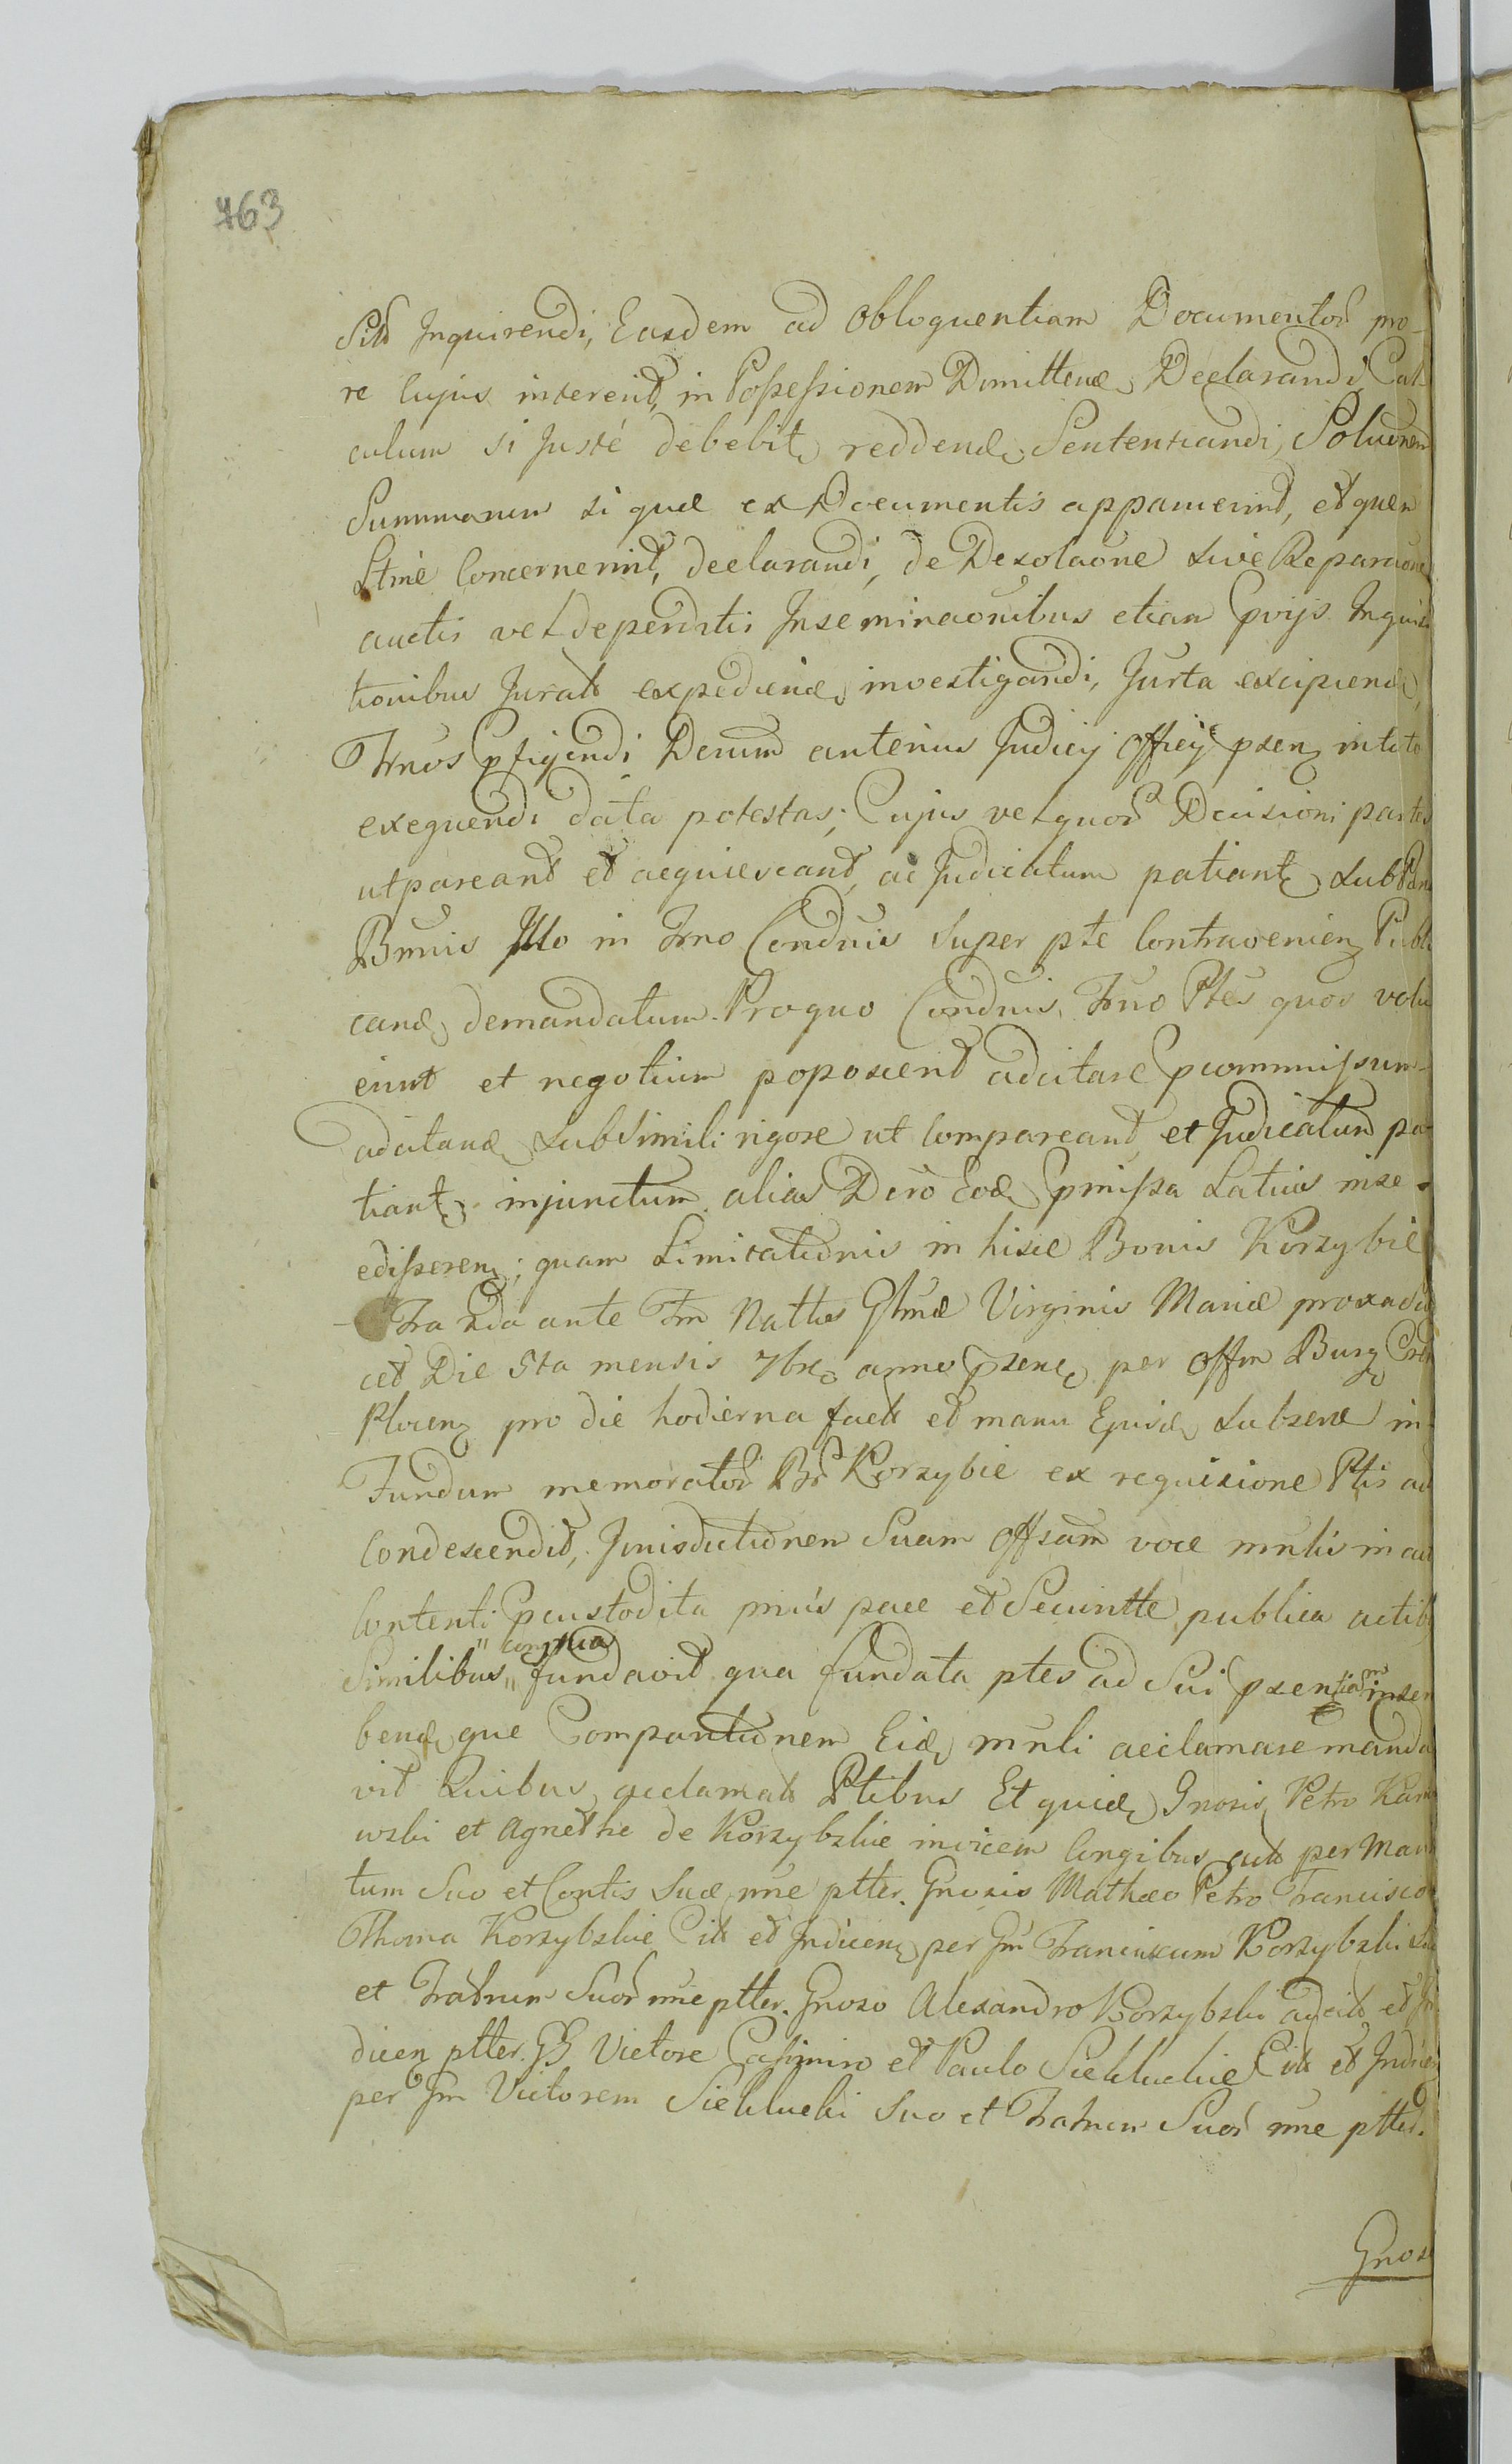 763
Sitt Inquirendi, Easdem ad obloquentiam Documentor pro-
re cujus intererit, in Possessionem Dimittend Declarandi Cal
culum si Justé debebit reddend Sententiandi, Solutnem
Summarum si quæ ex Documentis apparuerint, et quem
Ltme Concernerint, declarandi, de Desolaone sive Reparaone
auctis vel deperditis Inseminaonibus etiam pvijs Inquisi
tionibus Juratt expediend investigandi, Jurta excipiend
Trnos pfigendi Decrum anterius Judicij Officij psen in toto
exequendi data potestas; Cujus vel quor Decisioni partes
ut pareant et acquiescant, ac Judicatum patiant sub
Bnnis Illo in Trno Condnis super pte Contravenien Publi
cand demandatum. Pro quo Condnis Trno Ptes quos volu
erint et negotium poposcerit adcitare pcommissum
adcitand sub simili rigore ut compareant, et Judicatum pa
tiant injunctum alias Dcro Eod pmissa Latius inse
edisseren; quam Limitationis in hisce Bonis Korzybie
Fra 2da ante Fm Nattis Gstmæ Virginis Mariæ proxa
cet Die 5ta mensis 7bris anno psene per offm Burg
Plocen pro die hodierna factt et manu Ejusd subscrie in
Fundum memorator Br Korzybie ex requisione Ptis ac
Condescendit, Jurisdictionem Suam Offsam voce mnlis in act
Contenti pcustodita prius pace et Securitte publica actib
Similibus " congrua " fundavit qua fundata ptes ad Sui psentiam inscri
bend que Comparitionem Eid mnli acclamare manda
vit Quibus acclamatt Ptibus Et quid Gnosis Petro Kar
wski et Agnethe de Korzybskie invicem Congibus citt per Mari
tum Suo et Contis Suæ nne ptter. Gnosis Mathæo Petro Francisco
Thoma Korzybskie Citt et Indicen per Gm Franciscum Korzybski Suo
et Fratrum Suor nne ptter. Gnoso Alexandro Korzybski adcitt et In
dicen ptter. GG Victore Casimiro et Paulo Siekluckie Citt et Indicen
per Gm Victorem Sieklucki Suo et Fratrum Suor nne ptter.
Gnosi